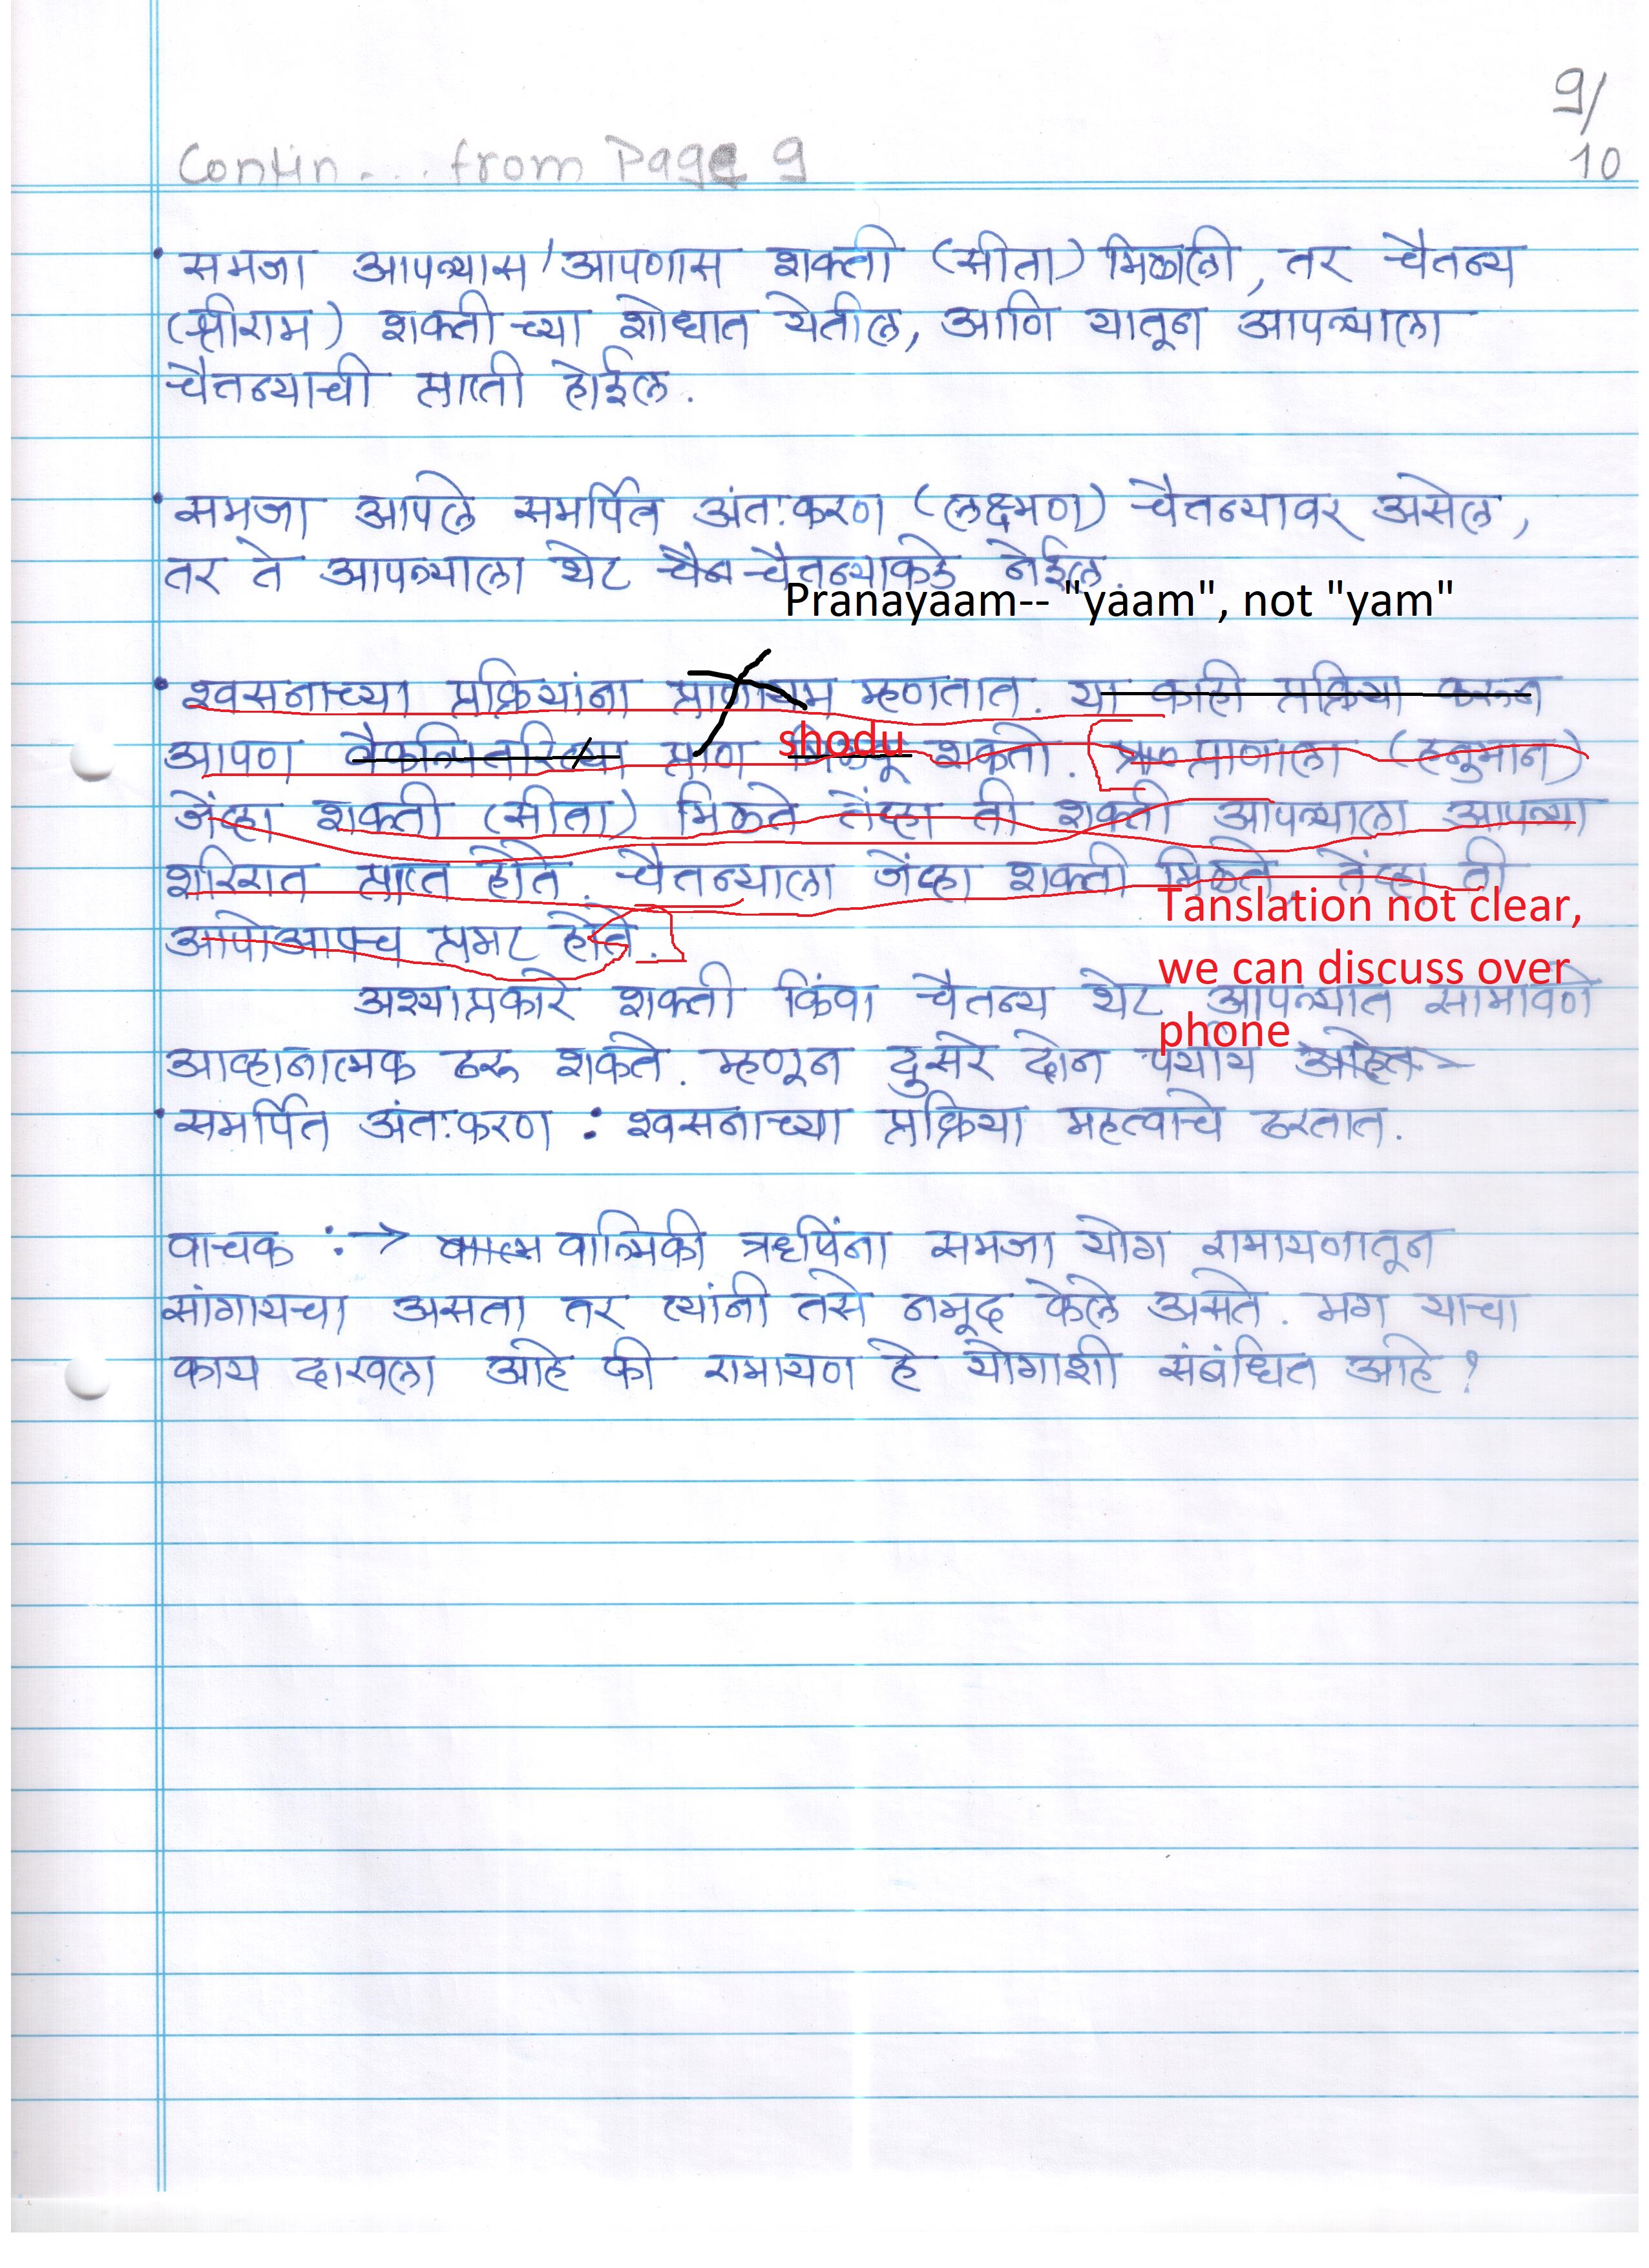 9/
10
Contin... from Page 9
• समजा आपल्यास / आपणास शक्ती (सीता) मिळाली, तर चैतन्य
(श्रीराम) शक्तीच्या शोधात येतील, आणि यातून आपल्याला
चैतन्याची प्राप्ती होईल.
• समजा आपले समर्पित अंतःकरण (लक्ष्मण) चैतन्यावर असेल,
तर ते आपल्याला थेट चैन चैतन्याकडे नेईल.
Pranayaam-- "yaam", not "yam"
• श्वसनाच्या प्रक्रियांना प्राणायम म्हणतात. या काही प्रक्रिया करून
shodu
आपण वैकल्पितरित्या प्राण मिळवू शकतो. प्राणाला (हनुमान)
जेंव्हा शक्ती (सीता) मिळते तेंव्हा ती शक्ती आपल्याला आपल्या
शरिरात प्राप्त होते. चैतन्याला जेंव्हा शक्ती मिळते, तेंव्हा ती
आपोआपच प्रगट होते.
Tanslation not clear,
we can discuss over
phone
अश्याप्रकारे शक्ती किंवा चैतन्य थेट आपल्यात सामावणे
आव्हानात्मक ठरू शकते. म्हणून दुसरे दोन पर्याय आहेत
• समर्पित अंतःकरण : श्वसनाच्या प्रक्रिया महत्वाचे ठरतात.
वाचक :→ वाल्मिकी ऋषिंना समजा योग रामायणातून
सांगायचा असता तर त्यांनी तसे नमूद केले असते. मग याचा
काय दाखला आहे की रामायण हे योगाशी संबंधित आहे?